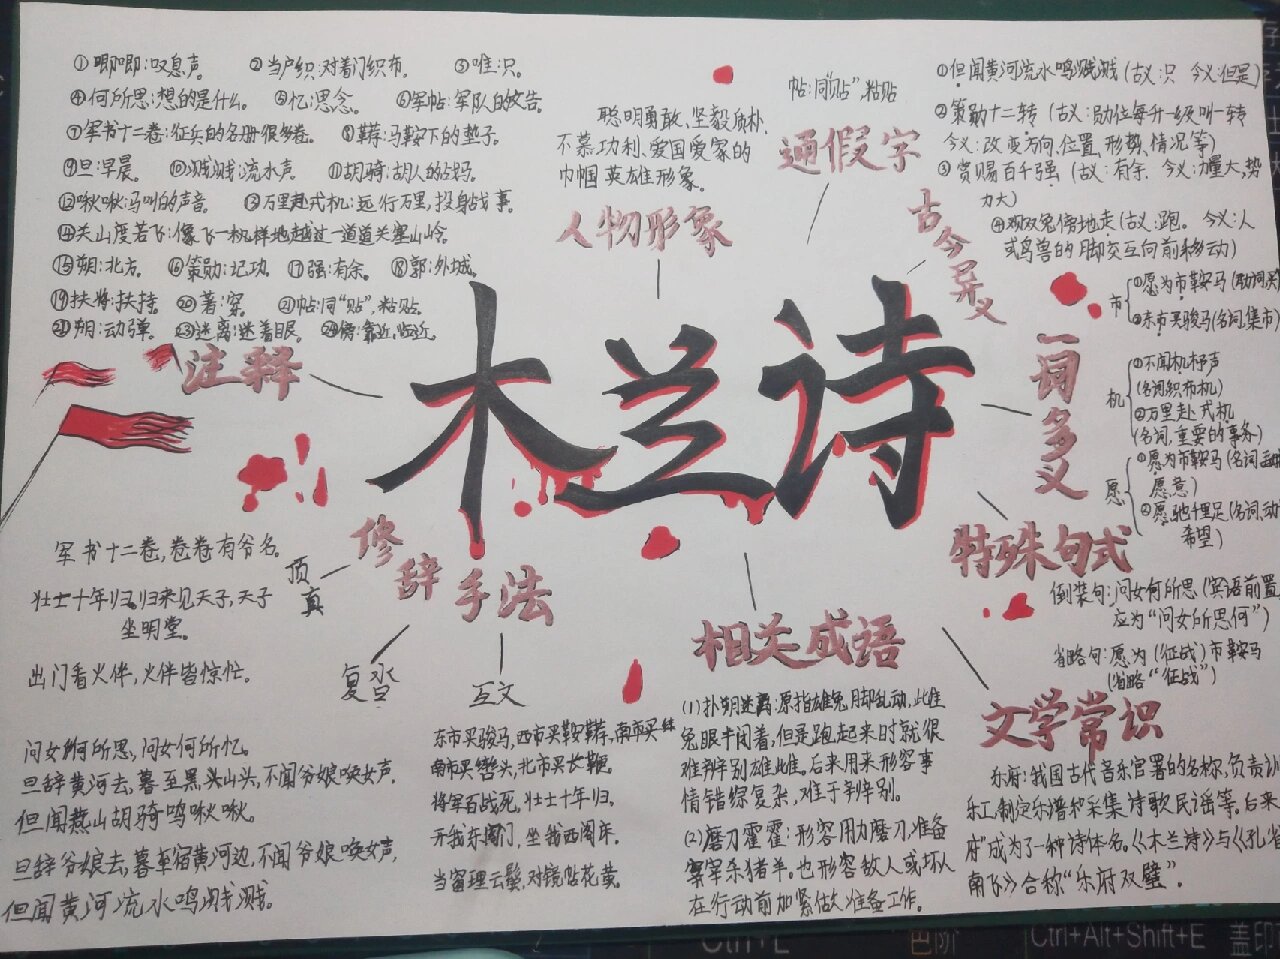 ①唧唧:叹息声。 ②当户织:对着门织布。 ③唯:只。
④何所思:想的是什么。 ⑤忆:思念。 ⑥军帖:军队的文告。
⑦军书十二卷:征兵的名册很多卷。 ⑧鞯:马鞍下的垫子。
⑨旦:早晨。 ⑩溅溅:流水声。 ⑪胡骑:胡人的战马。
⑫啾啾:马叫的声音。 ⑬万里赴戎机:远行万里,投身战事。
⑭关山度若飞:像飞一样地越过一道道关塞山岭。
⑮朔:北方。 ⑯策勋:记功。 ⑰强:有余。 ⑱郭:外城。
⑲扶将:扶持。 ⑳著:穿。 ㉑帖:同“贴”,粘贴。
㉑朔:动弹。 ㉓迷离:迷着眼。 ㉔傍:靠近,临近。
注释
聪明勇敢、坚毅质朴、
不慕功利、爱国爱家的
巾帼英雄形象。
人物形象
帖:同“贴”,粘贴
通假字
①但闻黄河流水鸣溅溅(古义:只 今义:但是)
②策勋十二转(古义:勋位每升一级叫一转
今义:改变方向、位置、形势、情况等)
③赏赐百千强(古:有余 今义:力量大,势
力大)
④双兔傍地走(古义:跑。 今义:人
或鸟兽的脚交互向前移动)
古今异义
木兰诗
一词多义
市
①愿为市鞍马(动词,买
②东市买骏马(名词,集市)
机
①不闻机杼声
(名词,织布机)
②万里赴戎机
(名词,重要的事务)
愿
①愿为市鞍马(名词
愿意)
②愿驰千里足(名词,动
希望)
特殊句式
倒装句:问女何所思(宾语前置
应为“问女所思何”)
省略句:愿为(征战)市鞍马
(省略“征战”)
文学常识
乐府:我国古代音乐官署的名称,负责训
乐工、制定乐谱和采集诗歌民谣等。后来
府”成为了一种诗体名。《木兰诗》与《孔雀
南飞》合称“乐府双璧”。
相关成语
(1)扑朔迷离:原指雄兔脚乱动,此雌
兔眼半闭着,但是跑起来时就很
难辨别雄雌。后来用来形容事
情错综复杂,难于辨别。
(2)磨刀霍霍:形容用力磨刀,准备
宰杀猪羊。也形容敌人或坏人
在行动前加紧做准备工作。
修辞手法
顶真
军书十二卷,卷卷有爷名。
壮士十年归。归来见天子,天子
坐明堂。
出门看火伴,火伴皆惊忙。
复沓
问女何所思,问女何所忆。
旦辞黄河去,暮至黑山头,不闻爷娘唤女声,
但闻燕山胡骑鸣啾啾。
旦辞爷娘去,暮宿黄河边,不闻爷娘唤女声,
但闻黄河流水鸣溅溅。
互文
东市买骏马,西市买鞍鞯,南市买
南市买辔头,北市买长鞭。
将军百战死,壮士十年归。
开我东阁门,坐我西阁床。
当窗理云鬓,对镜贴花黄。
Ctrl+E
色阶
Ctrl+Alt+Shift+E
盖印